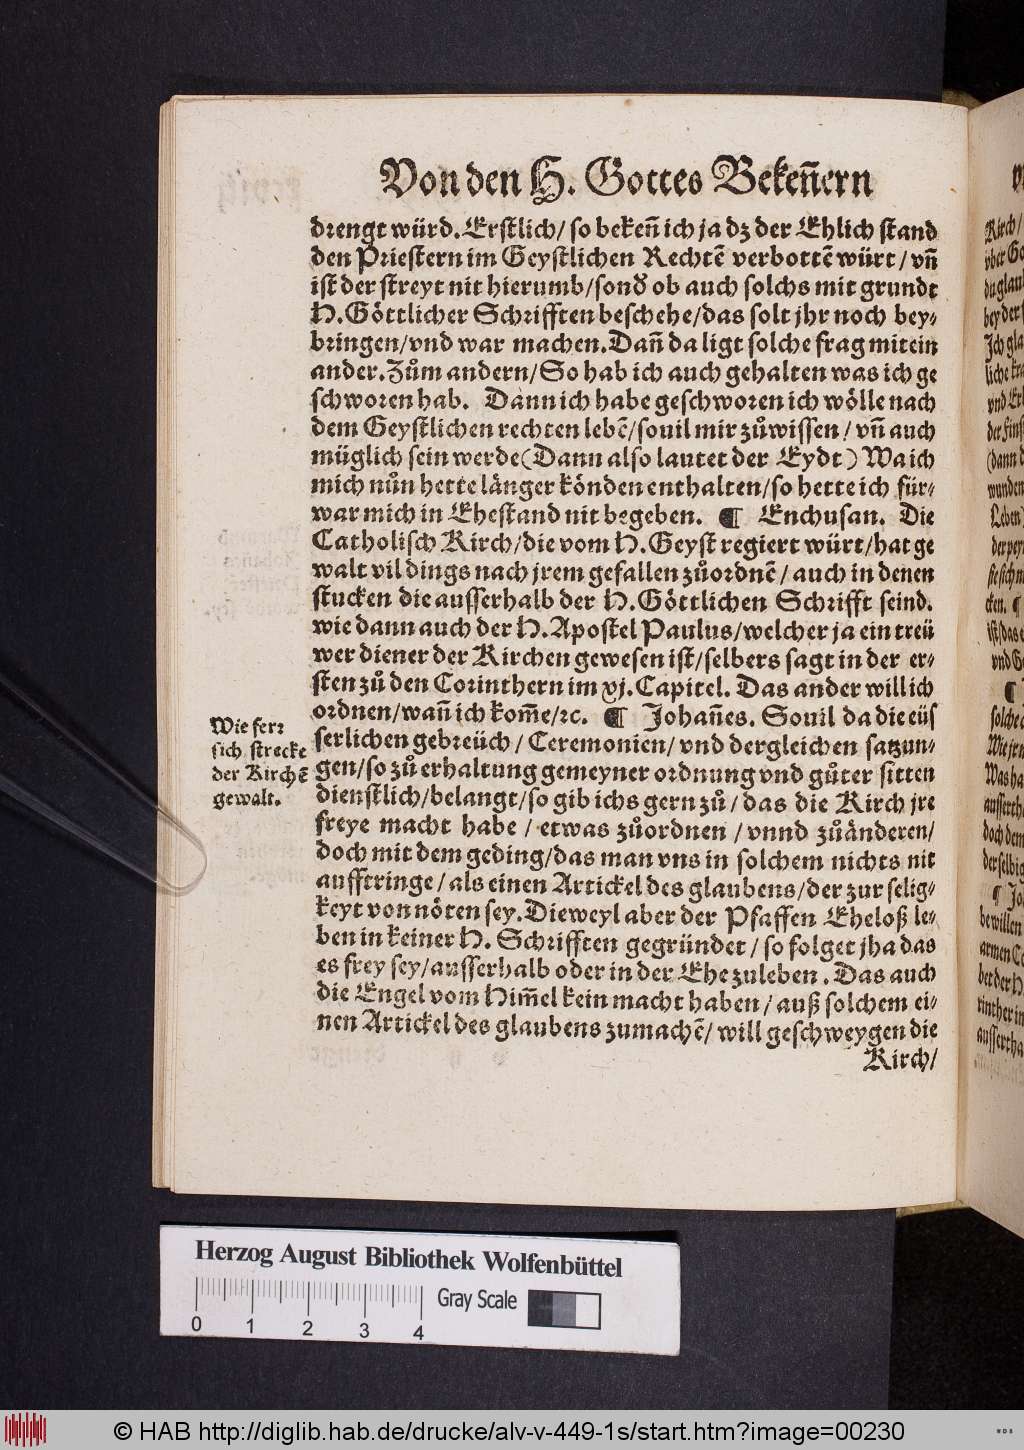 Von den H. Gottes Bekeñern
drengt würd. Erstlich/ so bekeñ ich ja dz der Ehlich stand
den Priestern im Geystlichen Rechtẽ verbottẽ würt/ vñ
ist der streyt nit hierumb/ sond̃ ob auch solchs mit grundt
H. Göttlicher Schrifften beschehe/ das solt jhr noch bey-
bringen/ vnd war machen. Dañ da ligt solche frag mitein
ander. Zům andern/ So hab ich auch gehalten was ich ge
schworen hab. Dann ich habe geschworen ich wölle nach
dem Geystlichen rechten lebẽ/ souil mir zůwissen/ vñ auch
müglich sein werde (Dann also lautet der Eydt) Wa ich
mich nůn hette länger könden enthalten/ so hette ich für-
war mich in Ehestand nit begeben. ¶ Enchusan. Die
Catholisch Kirch/ die vom H. Geyst regiert würt/ hat ge
walt vil dings nach jrem gefallen zůordnẽ/ auch in denen
stucken die ausserhalb der H. Göttlichen Schrifft seind.
wie dann auch der H. Apostel Paulus/ welcher ja ein treü
wer diener der Kirchen gewesen ist/ selbers sagt in der er-
sten zů den Corinthern im xj. Capitel. Das ander will ich
ordnen/ wañ ich kom̃e/ ꝛc. ¶ Johañes. Souil da die eüs
serlichen gebreüch/ Ceremonien/ vnd dergleichen satzun-
gen/ so zů erhaltung gemeyner ordnung vnd gůter sitten
dienstlich/ belangt/ so gib ichs gern zů/ das die Kirch jre
freye macht habe/ etwas zůordnen/ vnnd zůänderen/
doch mit dem geding/ das man vns in solchem nichts nit
aufftringe/ als einen Artickel des glaubens/ der zur selig-
keyt von nöten sey. Dieweyl aber der Pfaffen Eheloß le-
ben in keiner H. Schrifften gegründet/ so folget jha das
es frey sey/ ausserhalb oder in der Ehe zuleben. Das auch
die Engel vom Him̃el kein macht haben/ auß solchem ei-
nen Artickel des glaubens zumachẽ/ will geschweygen die
Kirch/
Wie ferꝛ
sich strecke
der Kirchẽ
gewalt.
Herzog August Bibliothek Wolfenbüttel
Gray Scale
0 1 2 3 4
© HAB http://diglib.hab.de/drucke/alv-v-449-1s/start.htm?image=00230